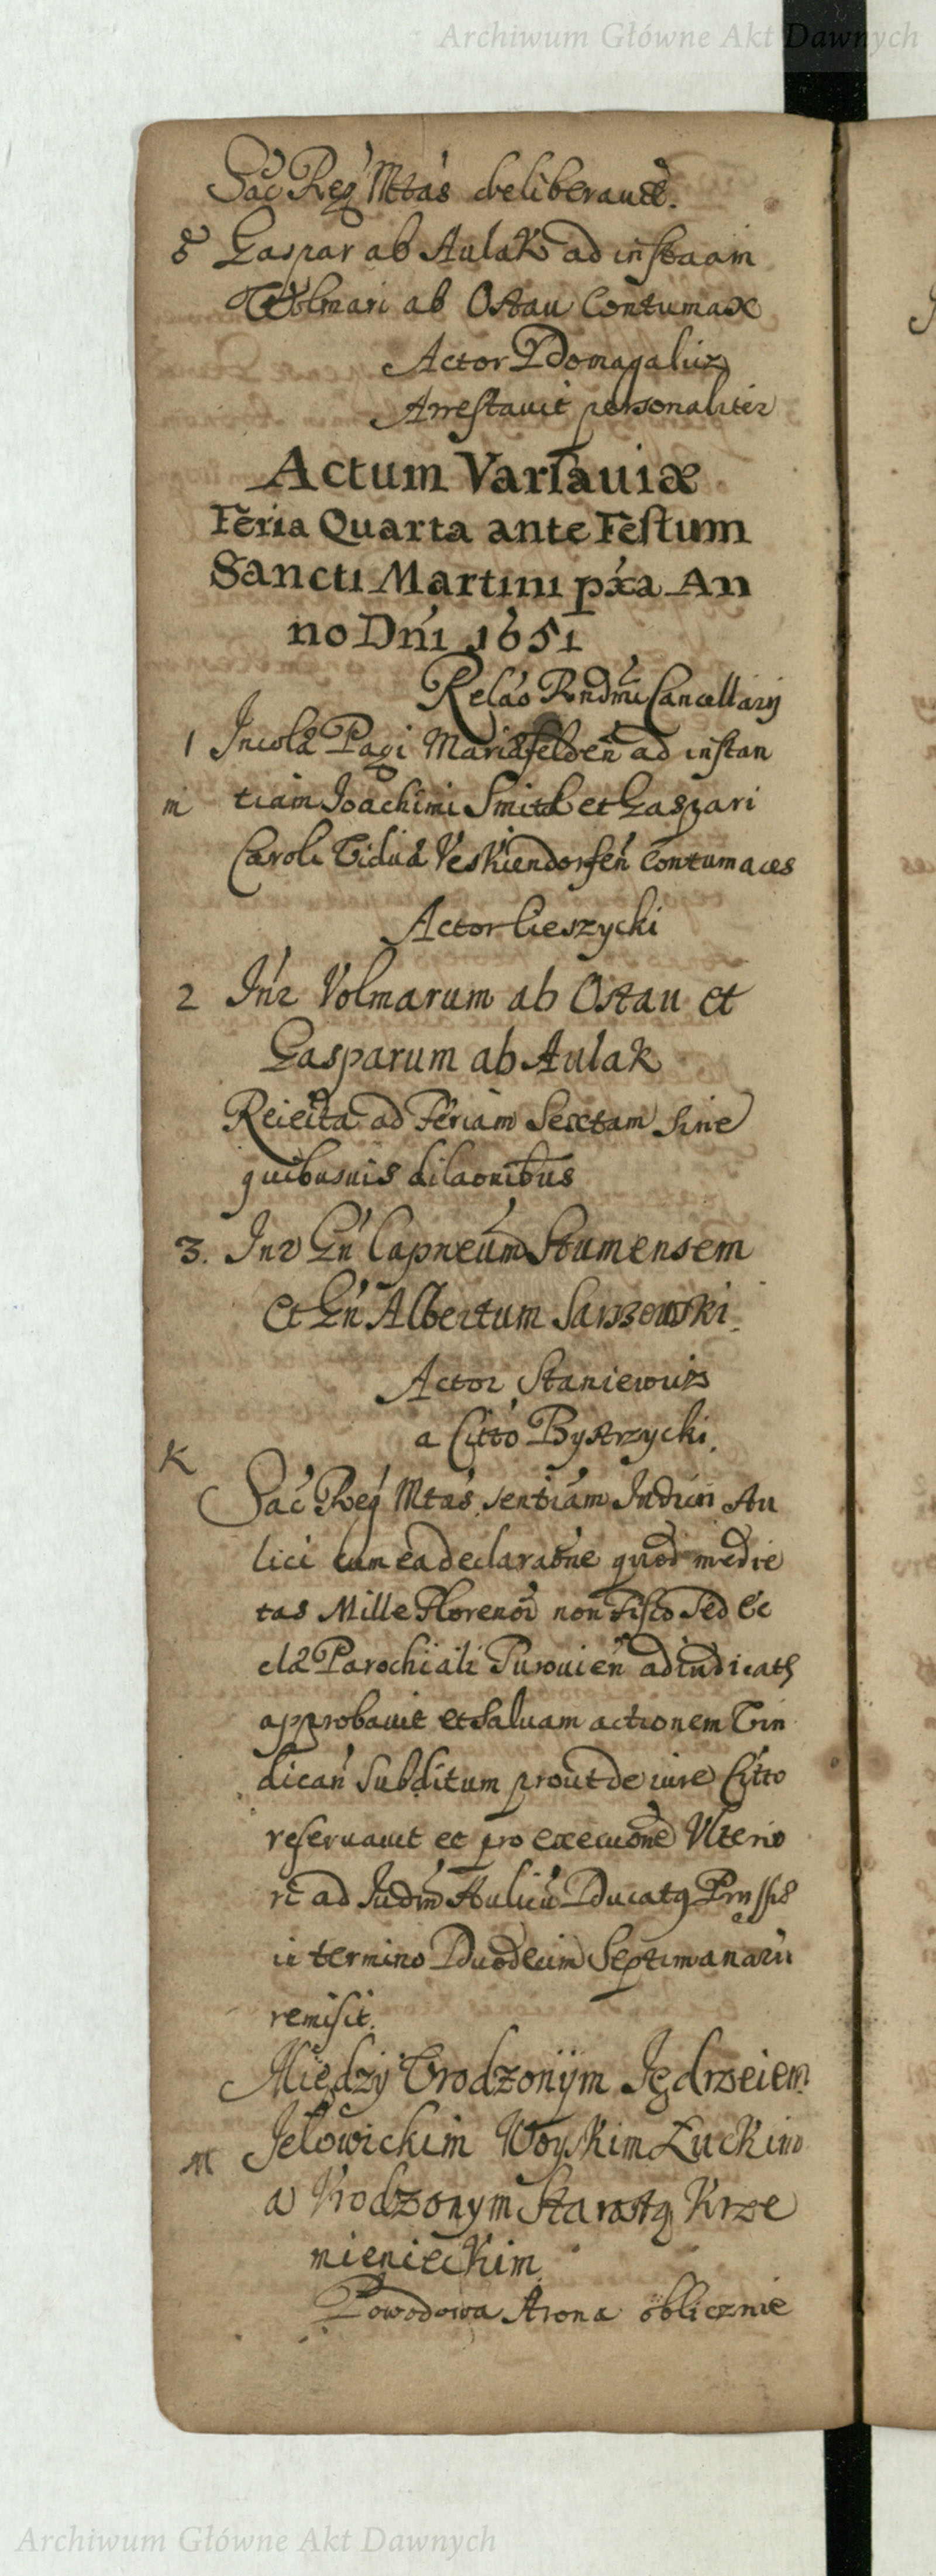 Archiwum Główne Akt Dawnych
Sac Reg Mtas deliberavit.
8 Gaspar ab Aulak ad instaam
Wolmari ab Ostau Contumax
Actor Domagalicz
Arrestavit personaliter
Actum Varsaviæ
Feria Quarta ante Festum
Sancti Martini pxa An
no Dni 1651
Relao Rndmi Cancellarij
1 Incolæ Pagi Mariæfelden ad instan
m tiam Joachimi Smitd et Gaspari
Caroli Vidua Veskiendorfen Contumaces
Actor Cieszycki
2 Inr Volmarum ab Ostau et
Gasparum ab Aulak
Reiecta ad Feriam Sextam Sine
quibusuis dilaonibus
3. Inr Gn Capneum Stumensem
Et Gn Albertum
Actor Staniewicz
a Citto Bystrzycki.
K
Sac Reg Mtas sentiam Iudicii Au
lici cum ea declaraone quod medie
tas Mille Florenor non Fisco Sed Ec
clæ Parochiali adiudicats
approbavit et Saluam actionem Vin
dican Subditum prout de iure Citto
reservavit et pro execuone Vlterio
ri ad Iudm Aulicu Ducatq Prussiæ
in termino Duodecim Septimanaru
remisit.
Między Vrodzonÿm Jędrzeiem
Jełowickim Woyskim Łuckim
M a Vrodzonym Starostą Krze
mienieckim
Powodowa strona oblicznie
Archiwum Główne Akt Dawnych